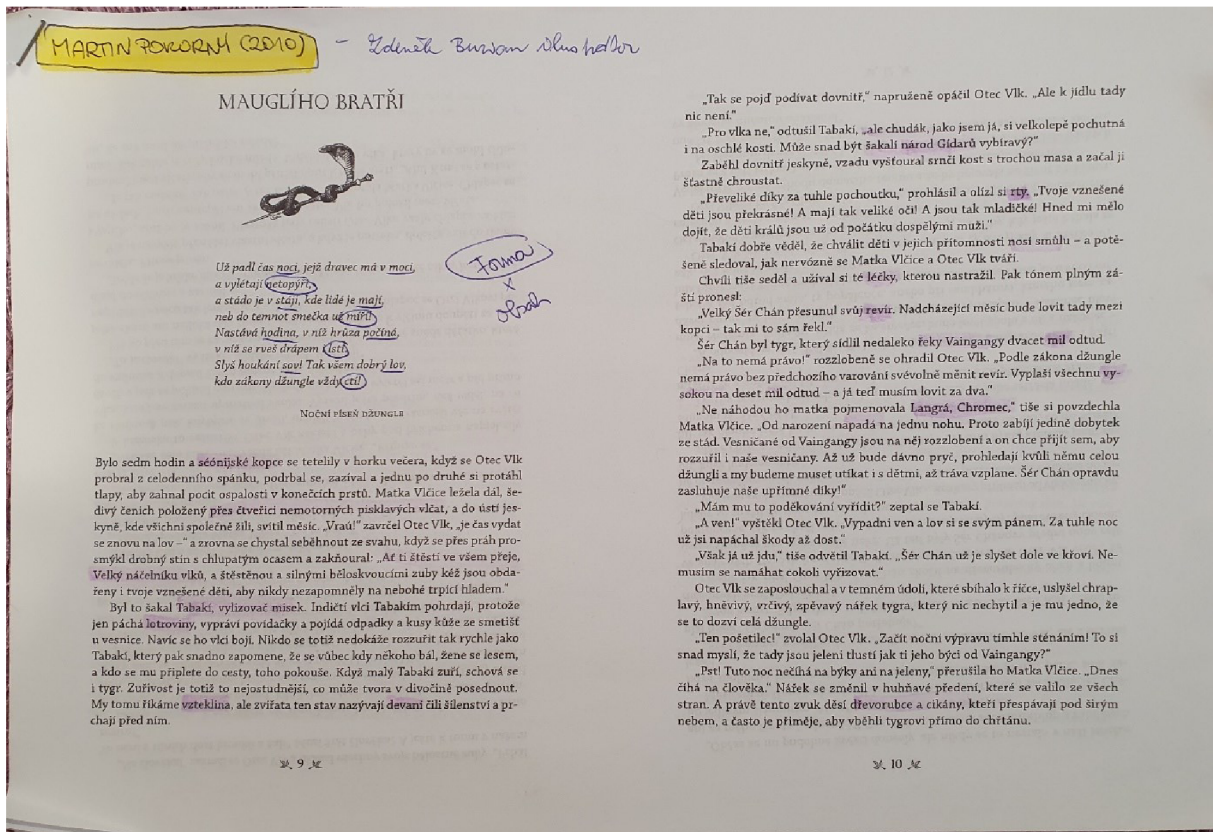 MARTIN POKORNÝ (2010) - Zdeněk Burian ilustrátor
MAUGLÍHO BRATŘI
Už padl čas noci, jejž dravec má v moci,
a vylétají netopýři,
a stádo je v stáji, kde lidé je mají,
neb do temnot smečka už míří.
Nastává hodina, v níž hrůza počíná,
v níž se rveš drápem i
Slyš houkání sov! Tak všem dobrý lov,
kdo zákony džungle vždy ctí!
Forma
x
obsah
NOČNÍ PÍSEŇ DŽUNGLE
Bylo sedm hodin a séónijské kopce se tetelily v horku večera, když se Otec Vlk
probral z celodenního spánku, podrbal se, zazíval a jednu po druhé si protáhl
tlapy, aby zahnal pocit ospalosti v konečcích prstů. Matka Vlčice ležela dál, še-
divý čenich položený přes čtveřici nemotorných pisklavých vlčat, a do ústí jes-
kyně, kde všichni společně žili, svítil měsíc. „Vraú!“ zavrčel Otec Vlk, „je čas vydat
se znovu na lov –“ a zrovna se chystal seběhnout ze svahu, když se přes práh pro-
smýkl drobný stín s chlupatým ocasem a zakňoural: „Ať ti štěstí ve všem přeje,
Velký náčelníku vlků, a štěstěnou a silnými běloskvoucími zuby kéž jsou obda-
řeny i tvoje vznešené děti, aby nikdy nezapomněly na nebohé trpící hladem.“
Byl to šakal Tabaki, vylizovač misek. Indičtí vlci Tabakím pohrdají, protože
jen páchá lotroviny, vypráví povídačky a pojídá odpadky a kusy kůže ze smetišť
u vesnice. Navíc se ho vlci bojí. Nikdo se totiž nedokáže rozzuřit tak rychle jako
Tabaki, který pak snadno zapomene, že se vůbec kdy někoho bál, žene se lesem,
a kdo se mu připlete do cesty, toho pokouše. Když malý Tabaki zuří, schová se
i tygr. Zuřivost je totiž to nejostudnější, co může tvora v divočině posednout.
My tomu říkáme vzteklina, ale zvířata ten stav nazývají devaní čili šílenství a pr-
chají před ním.
9
„Tak se pojď podívat dovnitř,“ napruženě opáčil Otec Vlk. „Ale k jídlu tady
nic není.“
„Pro vlka ne,“ odtušil Tabaki, „ale chudák, jako jsem já, si velkolepě pochutná
i na oschlé kosti. Může snad být šakalí národ Gídarů vybíravý?“
Zaběhl dovnitř jeskyně, vzadu vyšťoural srnčí kost s trochou masa a začal ji
šťastně chroustat.
„Převeliké díky za tuhle pochoutku,“ prohlásil a olízl si rty. „Tvoje vznešené
děti jsou překrásné! A mají tak veliké oči! A jsou tak mladičké! Hned mi mělo
dojít, že děti králů jsou už od počátku dospělými muži.“
Tabaki dobře věděl, že chválit děti v jejich přítomnosti nosí smůlu – a potě-
šeně sledoval, jak nervózně se Matka Vlčice a Otec Vlk tváří.
Chvíli tiše seděl a užíval si té léčky, kterou nastražil. Pak tónem plným zá-
ští pronesl:
„Velký Šér Chán přesunul svůj revír. Nadcházející měsíc bude lovit tady mezi
kopci – tak mi to sám řekl.“
Šér Chán byl tygr, který sídlil nedaleko řeky Vaingangy dvacet mil odtud.
„Na to nemá právo!“ rozzlobeně se ohradil Otec Vlk. „Podle zákona džungle
nemá právo bez předchozího varování svévolně měnit revír. Vyplaší všechnu vy-
sokou na deset mil odtud – a já teď musím lovit za dva.“
„Ne náhodou ho matka pojmenovala Langrá, Chromec,“ tiše si povzdechla
Matka Vlčice. „Od narození napadá na jednu nohu. Proto zabíjí jedině dobytek
ze stád. Vesničané od Vaingangy jsou na něj rozzlobení a on chce přijít sem, aby
rozzuřil i naše vesničany. Až už bude dávno pryč, prohledají kvůli němu celou
džungli a my budeme muset utíkat i s dětmi, až tráva vzplane. Šér Chán opravdu
zasluhuje naše upřímné díky!“
„Mám mu to poděkování vyřídit?“ zeptal se Tabaki.
„A ven!“ vyštěkl Otec Vlk. „Vypadni ven a lov si se svým pánem. Za tuhle noc
už jsi napáchal škody až dost.“
„Však já už jdu,“ tiše odvětil Tabaki. „Šér Chán už je slyšet dole ve křoví. Ne-
musím se namáhat cokoli vyřizovat.“
Otec Vlk se zaposlouchal a v temném údolí, které sbíhalo k říčce, uslyšel chrap-
lavý, hněvivý, vrčivý, zpěvavý nářek tygra, který nic nechytil a je mu jedno, že
se to dozví celá džungle.
„Ten pošetilec!“ zvolal Otec Vlk. „Začít noční výpravu tímhle sténáním! To si
snad myslí, že tady jsou jeleni tlustí jak ti jeho býci od Vaingangy?“
„Pst! Tuto noc nečíhá na býky ani na jeleny,“ přerušila ho Matka Vlčice. „Dnes
číhá na člověka.“ Nářek se změnil v huhňavé předení, které se valilo ze všech
stran. A právě tento zvuk děsí dřevorubce a cikány, kteří přespávají pod širým
nebem, a často je přiměje, aby vběhli tygrovi přímo do chřtánu.
10